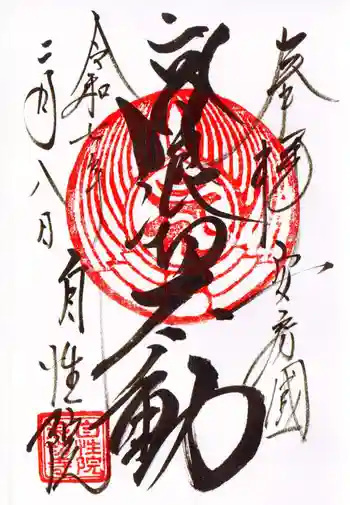 奉拝
安房國
浪切不動
令和七年
二月八日
自性院
自性院